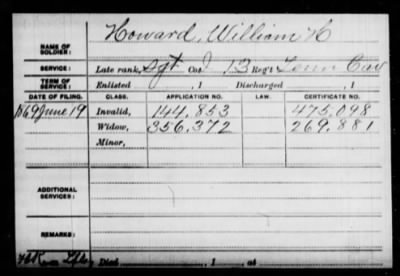 Howard, William H
NAME OF SOLDIER:
SERVICE: Late rank, Sgt Co. 13 Reg't Tenn Cav
TERM OF SERVICE: Enlisted , 1 Discharged , 1
DATE OF FILING. CLASS. APPLICATION NO. LAW. CERTIFICATE NO.
1869 June 19 Invalid, 144.853 475.098
Widow, 356.372 269.881
Minor,
ADDITIONAL SERVICES:
REMARKS:
Died , 1 , at